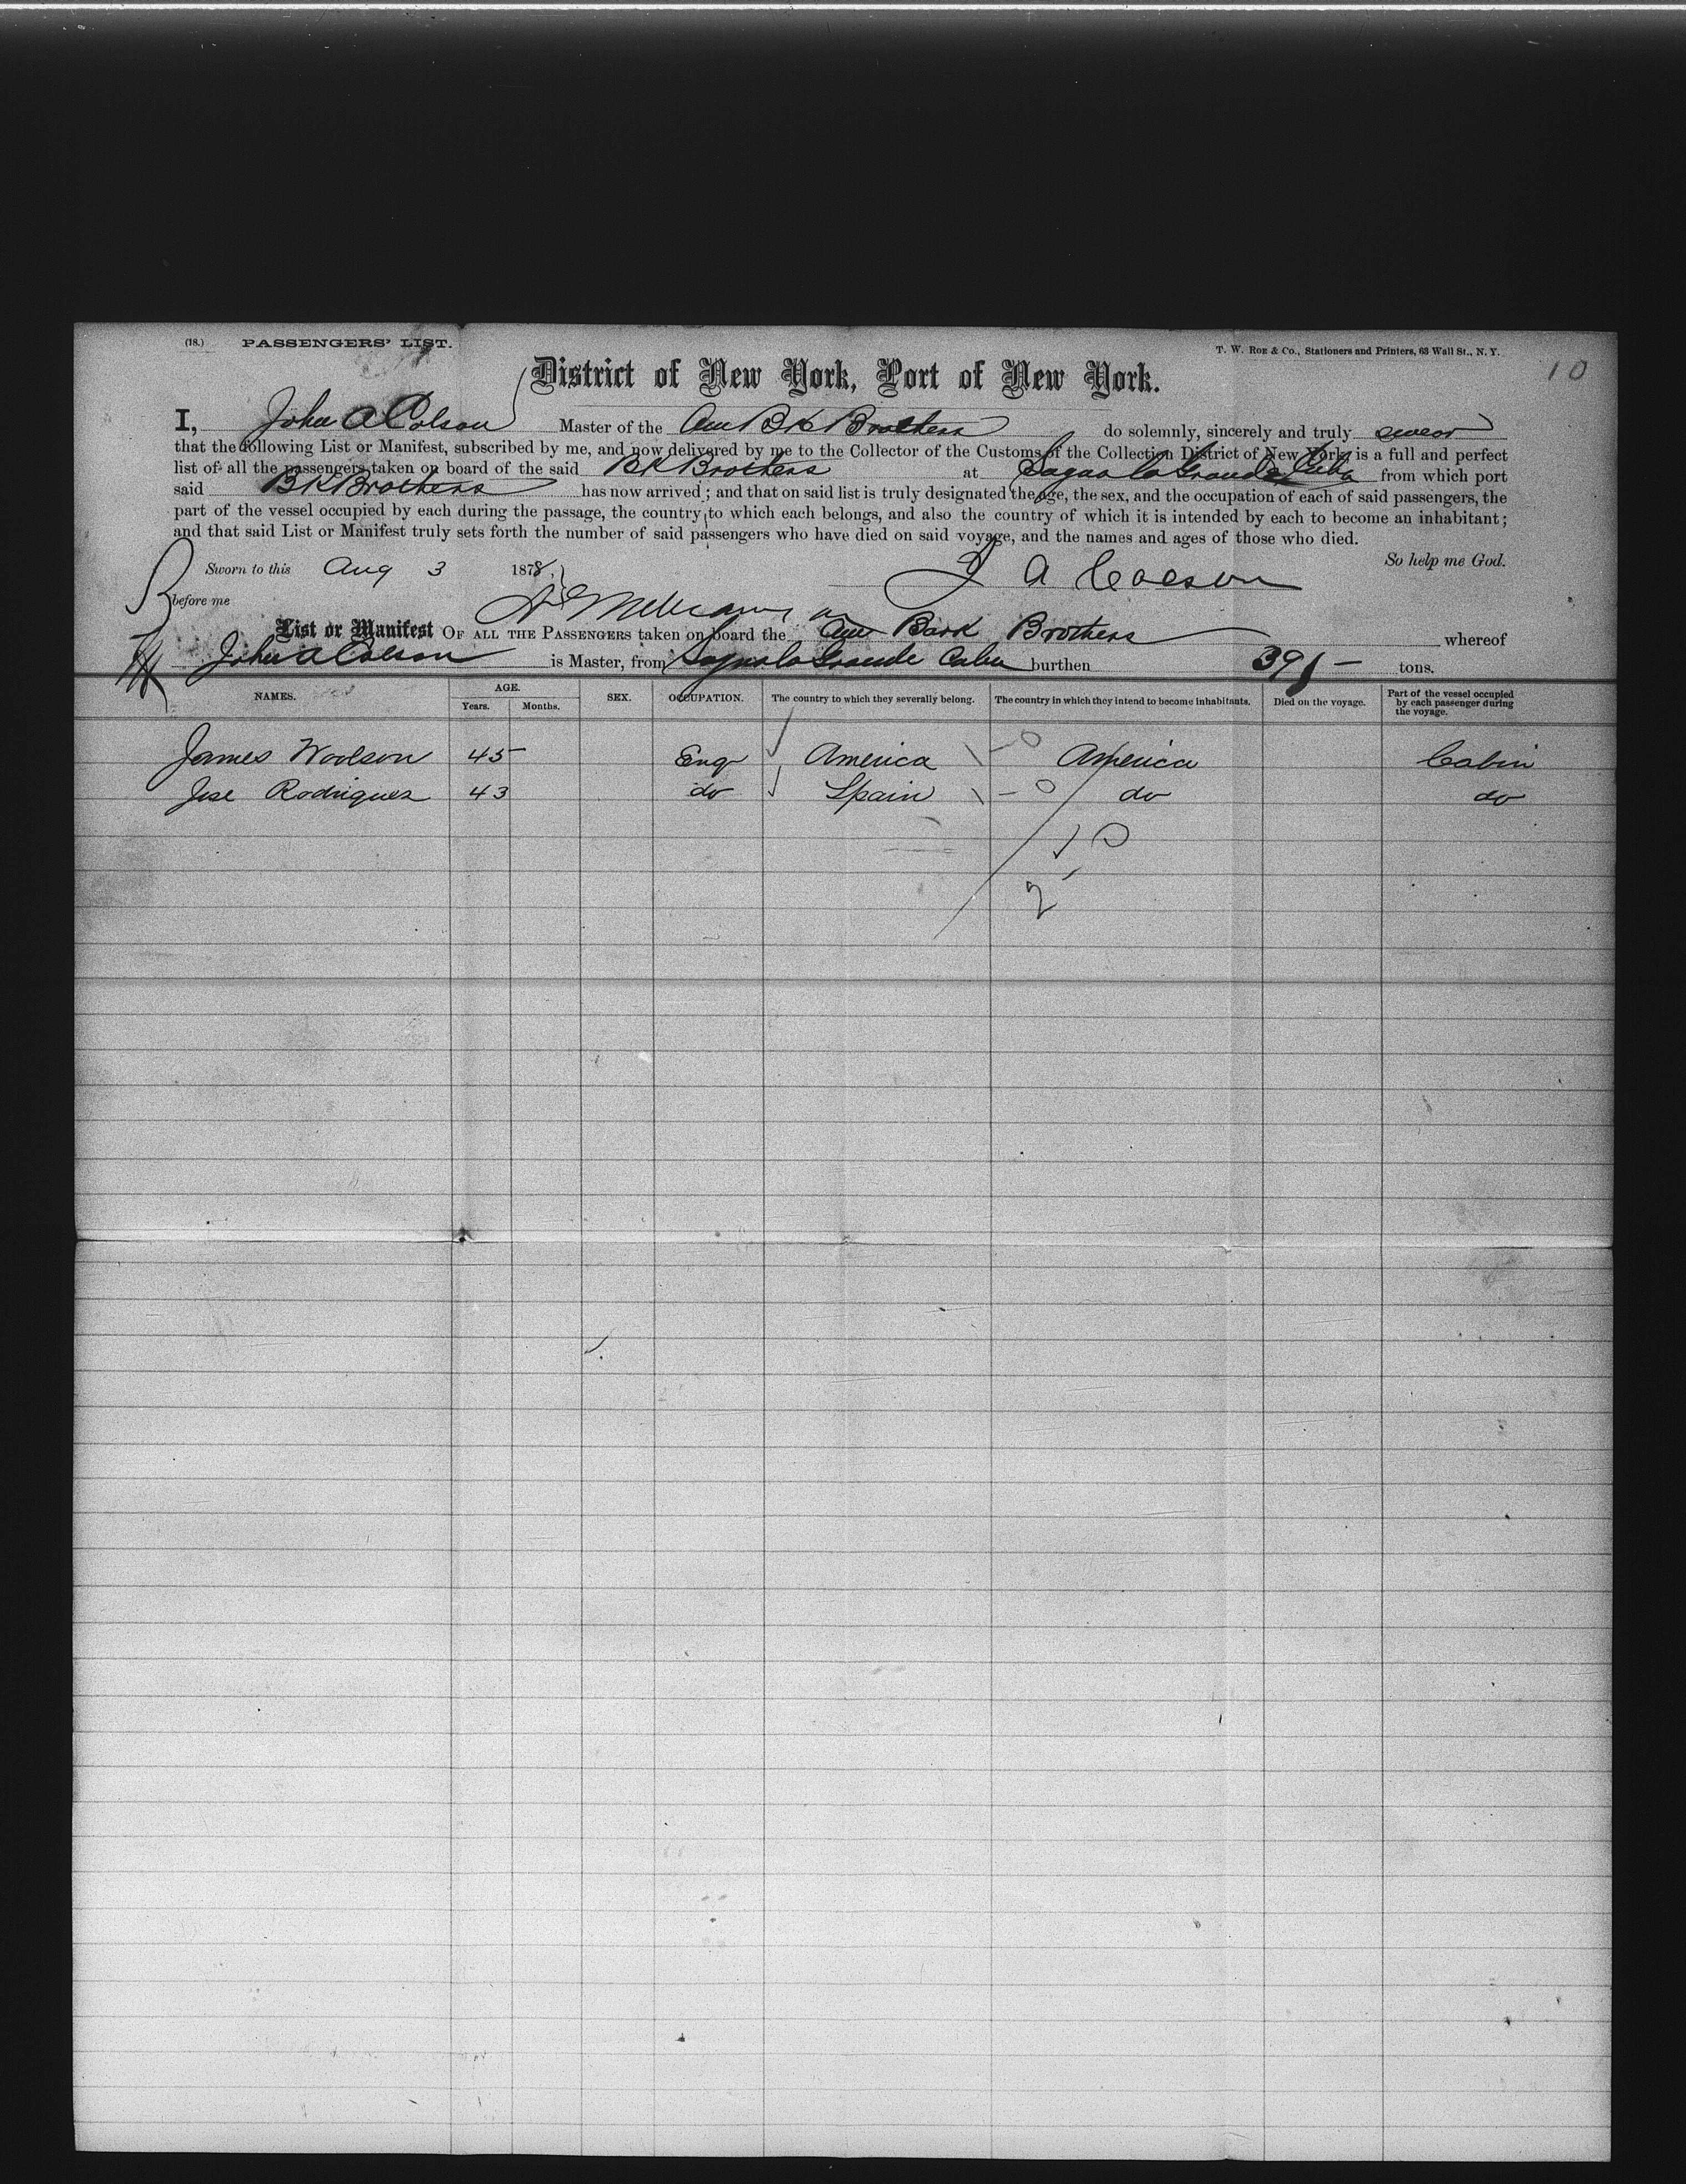 (18.) PASSENGERS' LIST. T. W. ROE & CO., Stationers and Printers, 63 Wall St., N. Y. 10
District of New York, Port of New York.
I, John A Colson Master of the Am Bk Brothers do solemnly, sincerely and truly swear
that the following List or Manifest, subscribed by me, and now delivered by me to the Collector of the Customs of the Collection District of New York, is a full and perfect
list of all the passengers taken on board of the said Bk Brothers at Sagua la Grande Cuba from which port
said Bk Brothers has now arrived; and that on said list is truly designated the age, the sex, and the occupation of each of said passengers, the
part of the vessel occupied by each during the passage, the country to which each belongs, and also the country of which it is intended by each to become an inhabitant;
and that said List or Manifest truly sets forth the number of said passengers who have died on said voyage, and the names and ages of those who died.
So help me God.
Sworn to this Aug 3 1878. J A Colson
before me
List or Manifest OF ALL THE PASSENGERS taken on board the Am Bark Brothers whereof
John A Colson is Master, from Sagua la Grande Cuba burthen 391 tons.
NAMES. AGE. Years. Months. SEX. OCCUPATION. The country to which they severally belong. The country in which they intend to become inhabitants. Died on the voyage. Part of the vessel occupied by each passenger during the voyage.
James Woolson 45 Eng America - 0 America Cabin
Jose Rodriguez 43 do Spain - 0 do do
10
2